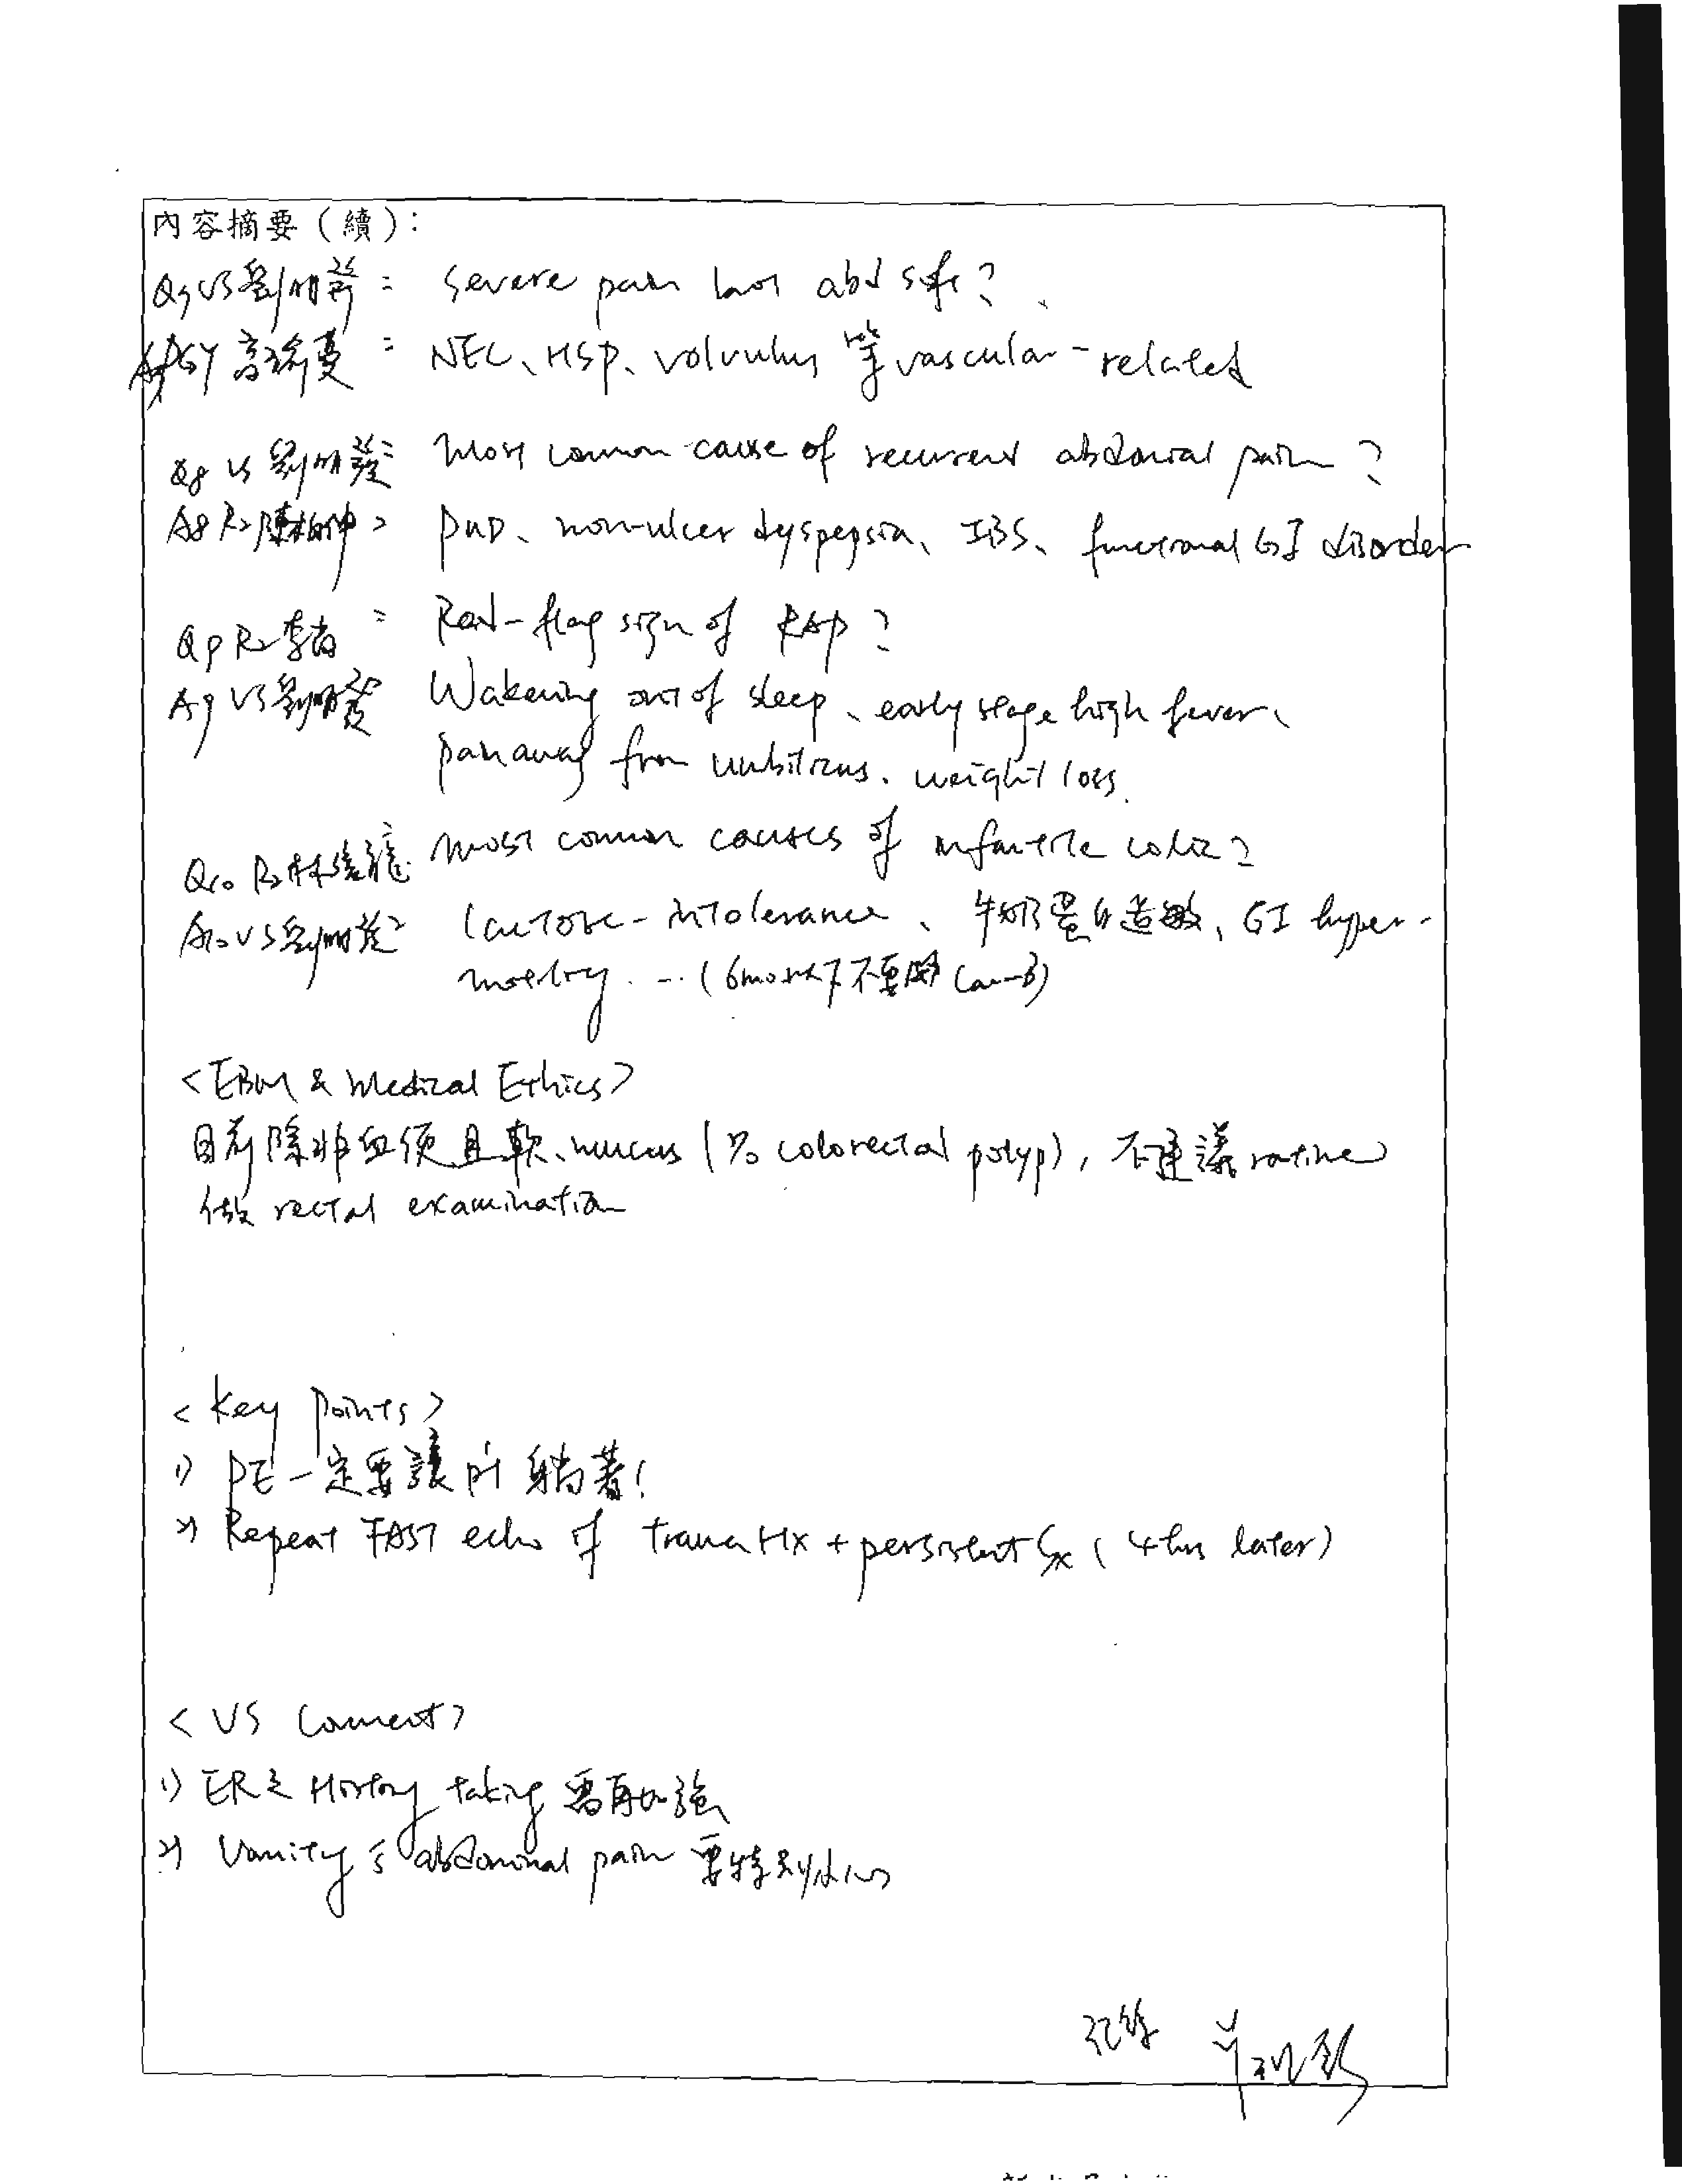 內容摘要（續）：
Q7 VS 劉明發： severe pain but abd soft？
A7 PGY 高瑜蔓： NEC、HSP、volvulus 等 vascular-related
Q8 VS 劉明發： most common cause of recurrent abdominal pain？
A8 R2 陳柏翀： PUD、non-ulcer dyspepsia、IBS、functional GI disorder
Q9 R2 李 ： Red-flag sign of RAP？
A9 VS 劉明發 Wakening out of sleep、early stage high fever、
pain away from umbilicus、weight loss.
Q10 R2 林 龍： most common causes of infantile colic？
A10 VS 劉明發： lactose-intolerance、牛奶蛋白過敏、GI hyper-
motility...（6mos以下不要開
<EBM & Medical Ethics>
目前除非血便且軟、mucus（r/o colorectal polyp），不建議 routine
做 rectal examination
<Key Points>
1) PE一定要讓pt躺著！
2) Repeat FAST echo if trauma Hx + persistent Sx（4 hrs later）
<VS Comment>
1) ER之 History taking 需再加強
2) Vomiting c̄ abdominal pain 要特別小心
記錄